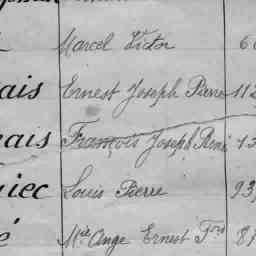 Marcel Victor 6
ais Ernest Joseph Pierre 112
nais François Joseph René 13
iec Louis Pierre 93
é Mie Ange Ernest Fois 81